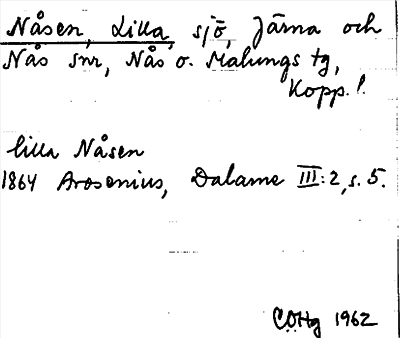 Nåsen, Lilla, sjö, Järna och
Nås snr, Nås o. Malungs tg,
Kopp. l.
lilla Nåsen
1864 Arosenius, Dalarne III:2, s. 5.
CÖHg 1962